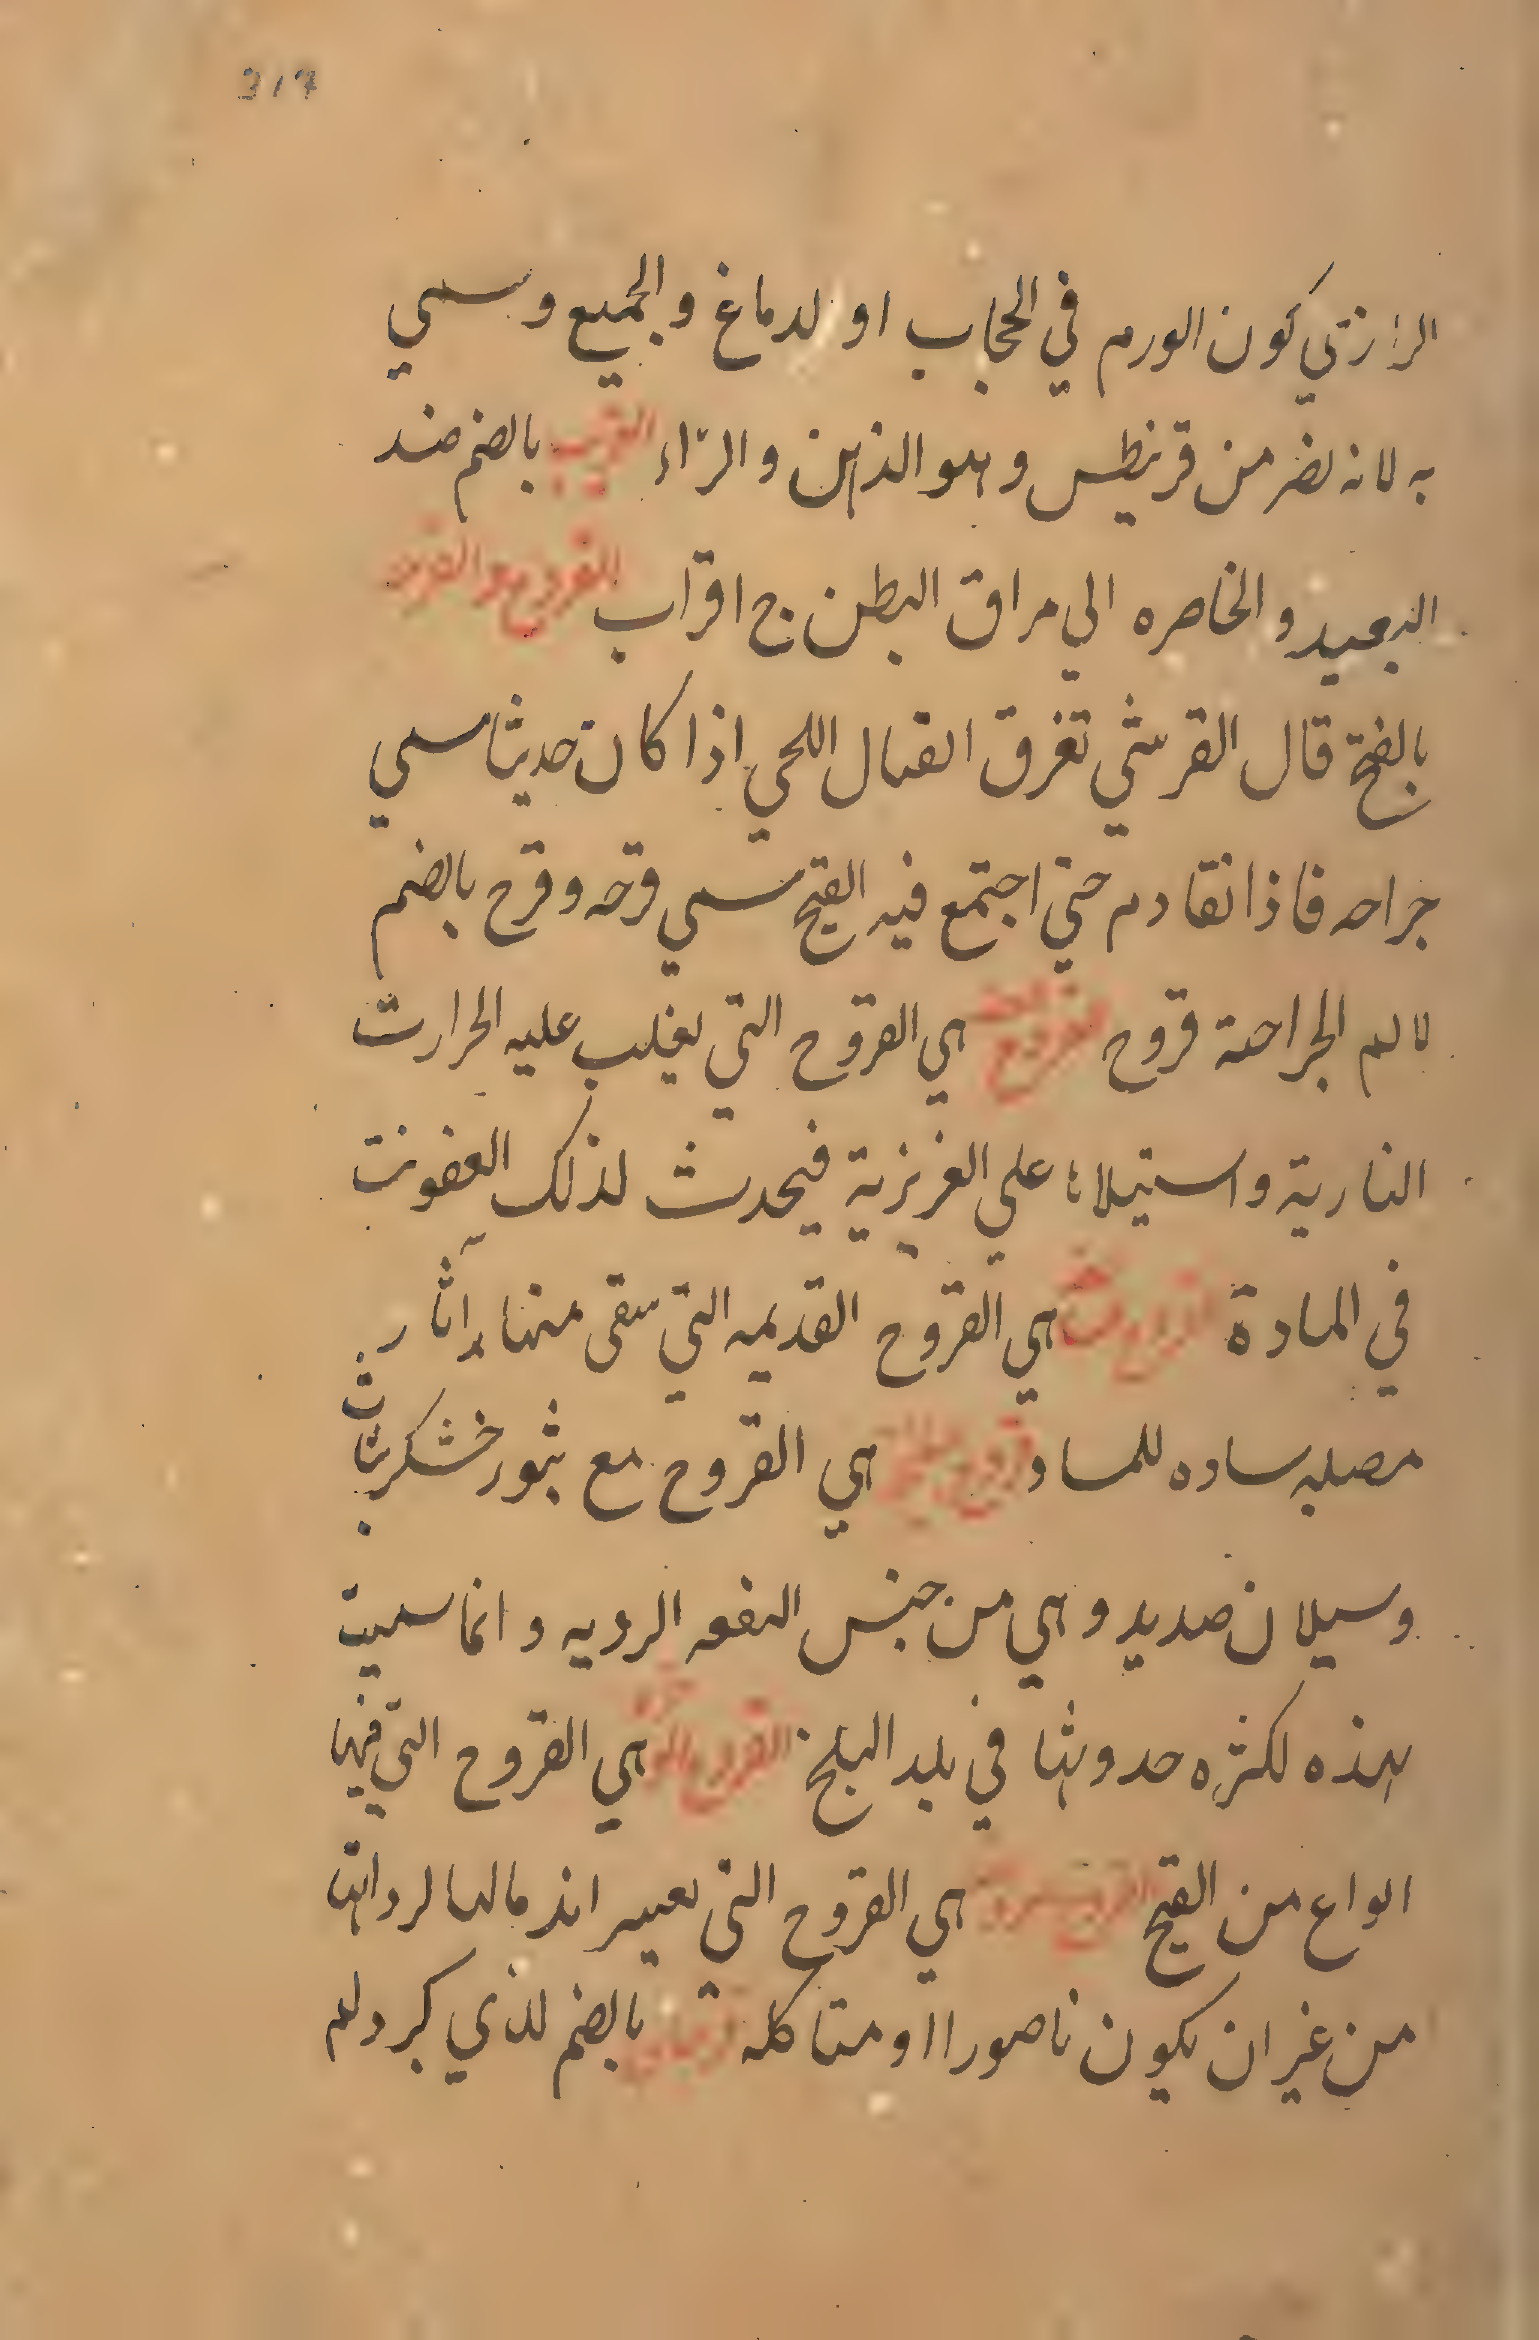 317
الرازتي كون الورم في الحجاب او الدماغ والجميع وسمي
به لانه يضر من قرنيطس وهو الذهن والراء القرب بالضم ضد
البعيد والخاصره الي مراق البطن ج اقراب القرح والقرحة
بالفتح قال القرشي تفرق اتصال اللحمي اذا كان حديثا سمي
جراحه فاذا تقادم حتي اجتمع فيه القيح سمي قرحه وقرح بالضم
لالم الجراحة قروح هي القروح التي يغلب عليه الحرارت
النارية واستيلاء علي الغريزية فيحدث لذلك العفونت
في المادة هي القروح القديمه التي تبقى منها اثار
مصلبه ساده للمساو هي القروح مع بثور خشكريشات
وسيلان صديد وهي من جنس السعفه الرديه وانما سميت
بهذه لكثره حدوثها في بلد البلخ القروح هي القروح التي فيها
انواع من القيح هي القروح التي يعسر اندمالها لرداتها
من غير ان يكون ناصورا او متاكله بالضم للذي كبر ولم